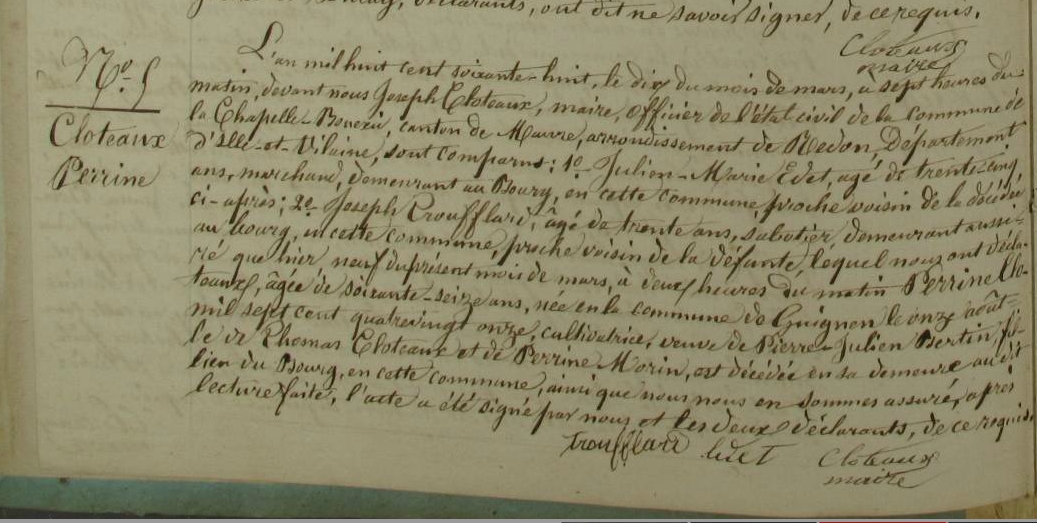 déclarants, ont dit ne savoir signer, de ce requis.
Cloteaux
maire
N.º 5
Cloteaux
Perrine
L'an mil huit cent soixante-huit, le dix du mois de mars, à sept heures du
matin, devant nous Joseph Cloteaux, maire, officier de l'état civil de la commune de
la Chapelle-Bouexic, canton de Maure, arrondissement de Redon, Département
d'Ille-et-Vilaine, sont comparus: 1º Julien-Marie Edet, agé de trente-cinq
ans, marchand, demeurant au Bourg, en cette commune, proche voisin de la décédée
ci-après; 2º Joseph Troufflard, âgé de trente ans, sabotier, demeurant aussi
au bourg, en cette commune, proche voisin de la défunte, lequel nous ont décla-
ré que hier neuf du présent mois de mars, à deux heures du matin Perrine Clo-
teaux, âgée de soixante-seize ans, née en la commune de Guignen le onze août
mil sept cent quatrevingt onze, cultivatrice, veuve de Pierre-Julien Bertin, fil-
le de Thomas Cloteaux et de Perrine Morin, est décédée en sa demeure au dit
lieu du Bourg, en cette commune, ainsi que nous nous en sommes assuré, après
lecture faite, l'acte a été signé par nous et les deux déclarants, de ce requis.
Troufflard
Cloteaux
maire